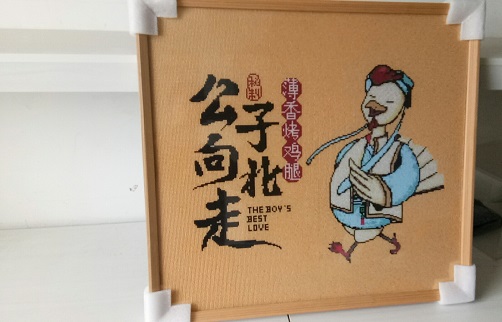 私制
公子向北走
薄香烤鸡腿
THE BOY'S
BEST
LOVE